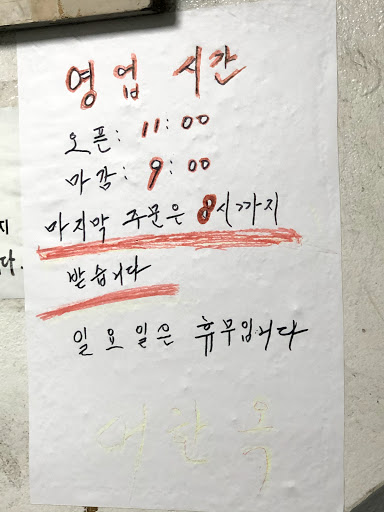 영업 시간
오픈: 11:00
마감: 9:00
마지막 주문은 8시까지
받습니다
일요일은 휴무입니다